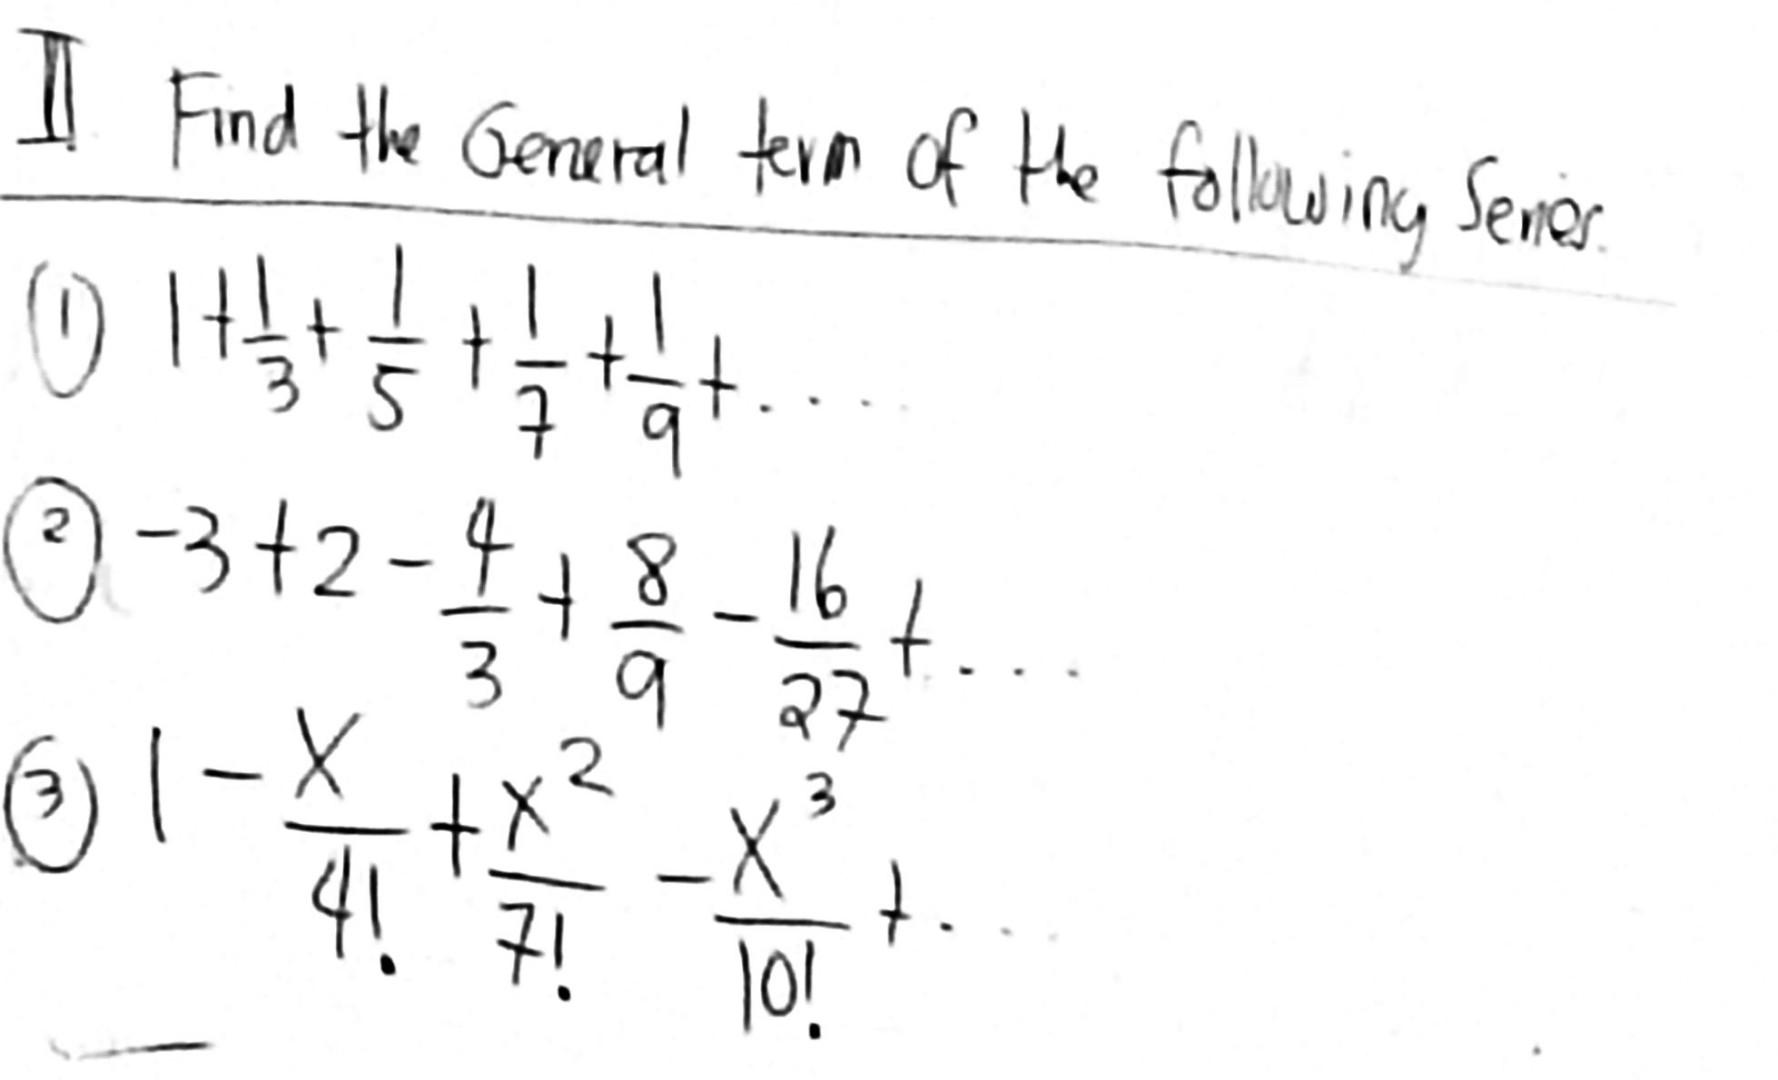 II Find the General term of the following Series.
① 1 + 1/3 + 1/5 + 1/7 + 1/9 + ....
② -3 + 2 - 4/3 + 8/9 - 16/27 + ....
③ 1 - x/4! + x²/7! - x³/10! + ....